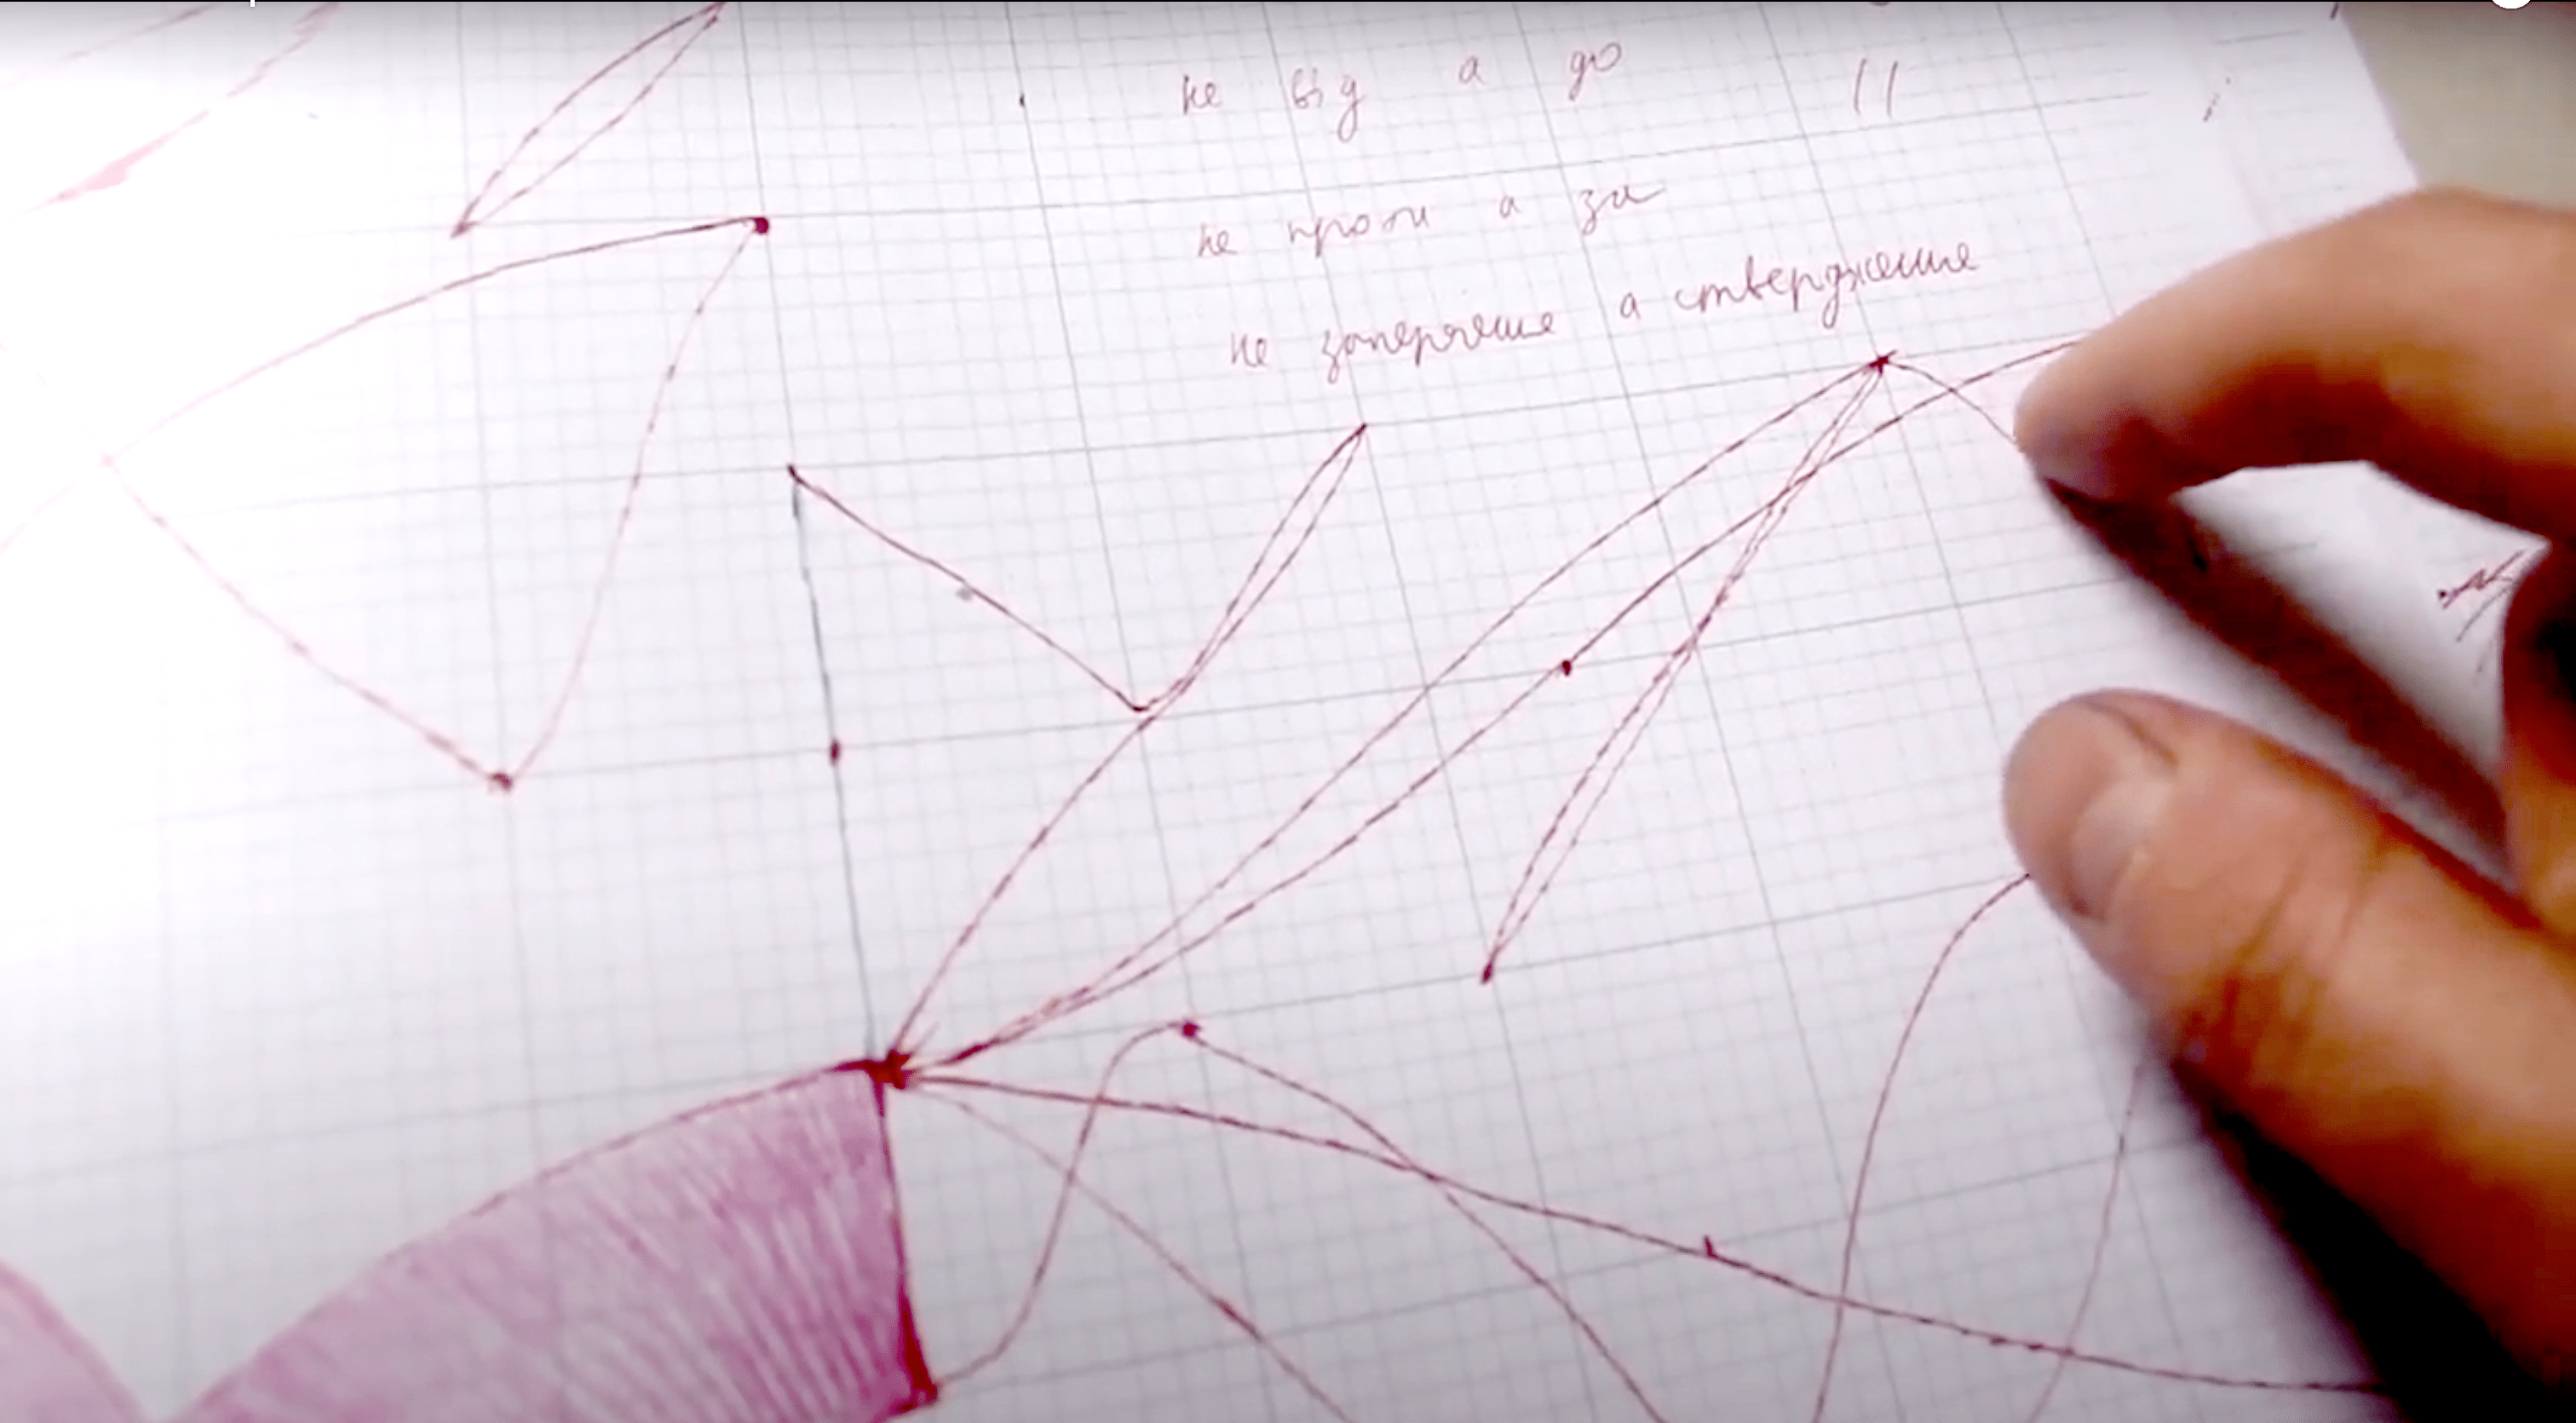 не від а до
не проти а за
не заперечення а ствердження